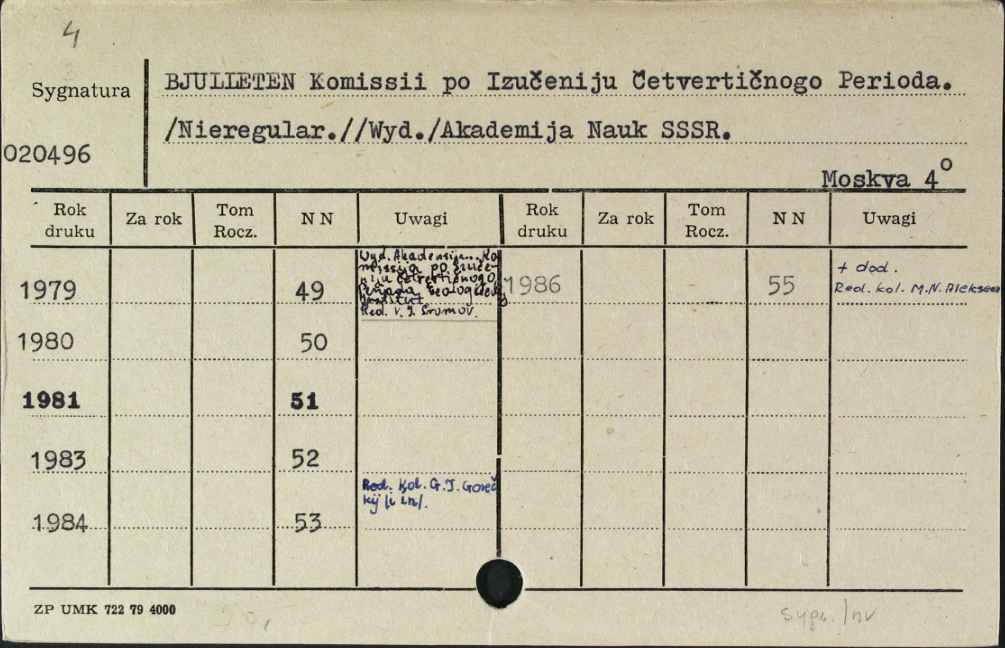 4
Sygnatura
BJULLETEN Komissii po Izučeniju Četvertičnogo Perioda.
/Nieregular.//Wyd./Akademija Nauk SSSR.
020496
Moskva 4o
Rok druku Za rok Tom Rocz. N N Uwagi Rok druku Za rok Tom Rocz. N N Uwagi
Wyd. Akademija.. Ko
missija po Izuče-
niju Četvertičnogo
Perioda Geologičeskij
Institut
Red. V. I. Gromov.
1979 49
1986 55
+ dod.
Red. kol. M.N. Alekseev
1980 50
1981 51
1983 52
Red. kol. G.I. Gorec
kij /i in/.
1984 53
ZP UMK 722 79 4000